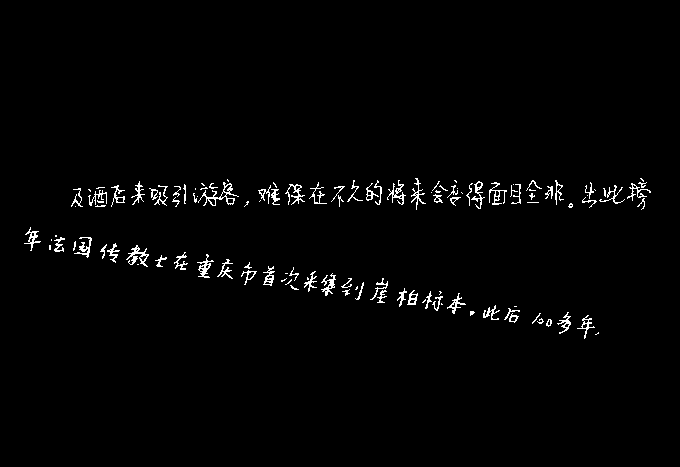 及酒店来吸引游客，难保在不久的将来会变得面目全非。出此榜
年法国传教士在重庆市首次采集到崖柏标本。此后100多年，